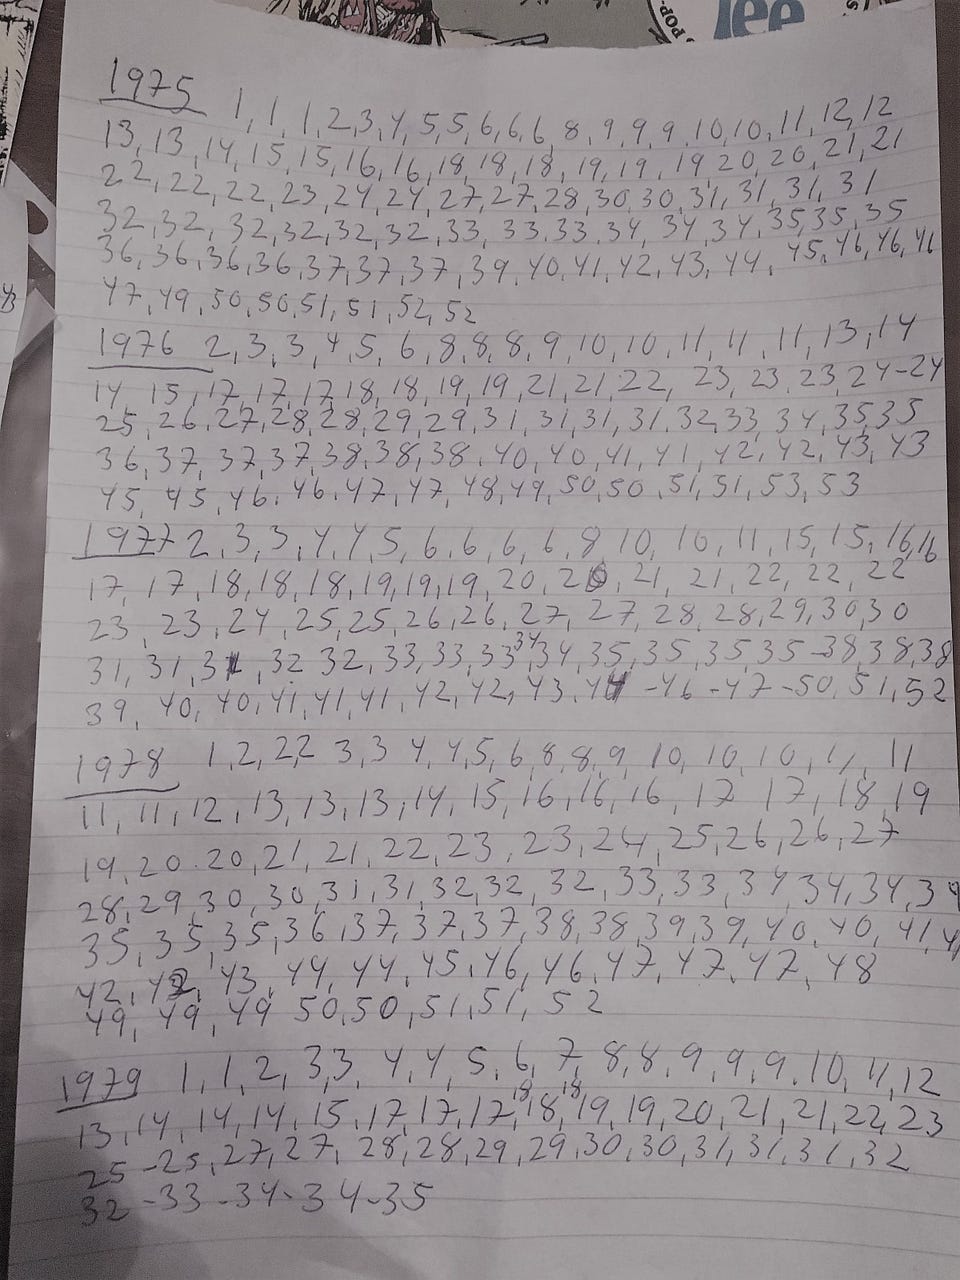 POP-
lee
1975 1, 1, 1, 2, 3, 4, 5, 5, 6, 6, 6, 8, 9, 9, 9, 10, 10, 11, 12, 12
13, 13, 14, 15, 15, 16, 16, 18, 18, 18, 19, 19, 19 20, 20, 21, 21
22, 22, 22, 23, 24, 24, 27, 27, 28, 30, 30, 31, 31, 31, 31
32, 32, 32, 32, 32, 32, 33, 33, 33, 34, 34, 34, 35, 35, 35
36, 36, 36, 36, 37, 37, 37, 39, 40, 41, 42, 43, 44, 45, 46, 46, 46
47, 49, 50, 50, 51, 51, 52, 52
1976 2, 3, 3, 4, 5, 6, 8, 8, 8, 9, 10, 10, 11, 11, 11, 13, 14
14, 15, 17, 17, 17, 18, 18, 19, 19, 21, 21, 22, 23, 23, 23, 24-24
25, 26, 27, 28, 28, 29, 29, 31, 31, 31, 31, 32, 33, 34, 35, 35
36, 37, 37, 37, 38, 38, 38, 40, 40, 41, 41, 42, 42, 43, 43
45, 45, 46, 46, 47, 47, 48, 49, 50, 50, 51, 51, 53, 53
1977 2, 3, 3, 4, 4, 5, 6, 6, 6, 6, 8, 10, 10, 11, 15, 15, 16, 16
17, 17, 18, 18, 18, 19, 19, 19, 20, 20, 21, 21, 22, 22, 22
23, 23, 24, 25, 25, 26, 26, 27, 27, 28, 28, 29, 30, 30
31, 31, 31, 32 32, 33, 33, 33, 34, 34, 35, 35, 35, 35 -38, 38, 38
39, 40, 40, 41, 41, 41, 42, 42, 43, 44 -46 -47 -50, 51, 52
1978 1, 2, 22 3, 3 4, 4, 5, 6, 8, 8, 9, 10, 10, 10, 11, 11
11, 11, 12, 13, 13, 13, 14, 15, 16, 16, 16, 17 17, 18, 19
19, 20 20, 21, 21, 22, 23, 23, 24, 25, 26, 26, 27
28, 29, 30, 30, 31, 31, 32, 32, 32, 33, 33, 34, 34, 34, 34
35, 35, 35, 36, 37, 37, 37, 38, 38, 39, 39, 40, 40, 41, 41
42, 42, 43, 44, 44, 45, 46, 46, 47, 47, 47, 48
49, 49, 49 50, 50, 51, 51, 52
1979 1, 1, 2, 3, 3, 4, 4, 5, 6, 7, 8, 8, 9, 9, 9, 10, 11, 12
13, 14, 14, 14, 15, 17, 17, 17, 18, 18, 18, 19, 19, 20, 21, 21, 22, 23
25 -25, 27, 27, 28, 28, 29, 29, 30, 30, 31, 31, 31, 32
32 -33 -34 -34 -35